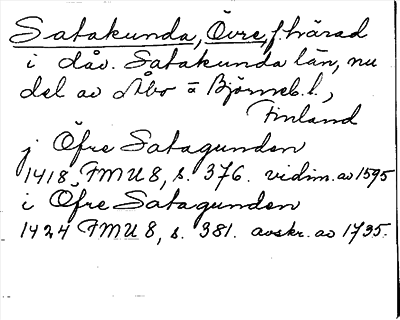 Satakunda, Övre, f. härad
i dåv. Satakunda län, nu
del av Åbo o Björneb. l.,
Finland
j Öfre Satagunden
1418 FMU 8, s. 376. vidim. av 1595
i Öfre Satagunden
1424 FMU 8, s. 381. avskr. av 1735.